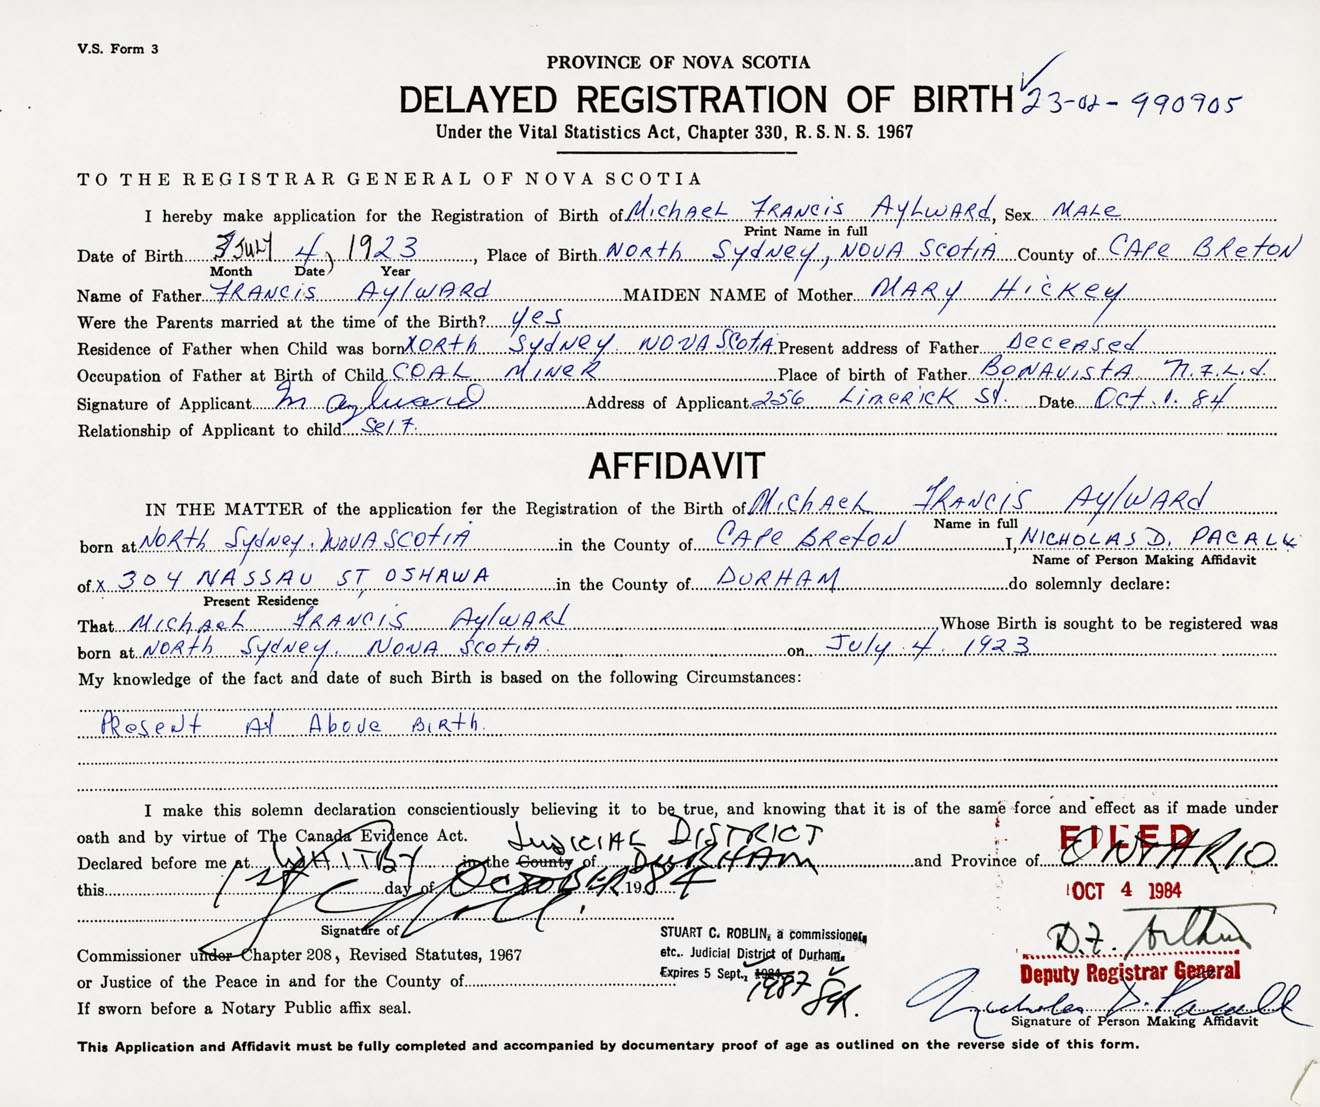 V.S. Form 3
PROVINCE OF NOVA SCOTIA
DELAYED REGISTRATION OF BIRTH 23-02-990905
Under the Vital Statistics Act, Chapter 330, R.S.N.S. 1967
TO THE REGISTRAR GENERAL OF NOVA SCOTIA
I hereby make application for the Registration of Birth of Michael Francis Aylward, Sex Male
Print Name in full
Date of Birth July 4, 1923, Place of Birth North Sydney, Nova Scotia County of Cape Breton
Month Date Year
Name of Father Francis Aylward MAIDEN NAME of Mother Mary Hickey
Were the Parents married at the time of the Birth? yes
Residence of Father when Child was born North Sydney. Nova Scotia Present address of Father Deceased
Occupation of Father at Birth of Child Coal Miner Place of birth of Father Bonavista N.F.L.d.
Signature of Applicant M Aylward Address of Applicant 256 Limerick St. Date Oct. 1. 84
Relationship of Applicant to child Self.
AFFIDAVIT
IN THE MATTER of the application for the Registration of the Birth of Michael Francis Aylward
Name in full
born at North Sydney. Nova Scotia in the County of Cape Breton I, NICHOLAS D. PACALL
Name of Person Making Affidavit
of x 304 NASSAU ST, OSHAWA in the County of DURHAM do solemnly declare:
Present Residence
That Michael Francis Aylward Whose Birth is sought to be registered was
born at North Sydney. Nova Scotia. on July 4. 1923
My knowledge of the fact and date of such Birth is based on the following Circumstances:
Present At Above Birth.
I make this solemn declaration conscientiously believing it to be true, and knowing that it is of the same force and effect as if made under
oath and by virtue of The Canada Evidence Act.
JUDICIAL DISTRICT
FILED
Declared before me at WHITBY in the County of DURHAM and Province of ONTARIO
this 1st day of OCTOBER 1984
OCT 4 1984
Signature of
STUART C. ROBLIN, a commissioner,
etc. Judicial District of Durham.
Expires 5 Sept., 1984 1987
D.F. Arthur
Deputy Registrar General
Commissioner under Chapter 208, Revised Statutes, 1967
or Justice of the Peace in and for the County of
If sworn before a Notary Public affix seal.
Nicholas D. Pacall
Signature of Person Making Affidavit
This Application and Affidavit must be fully completed and accompanied by documentary proof of age as outlined on the reverse side of this form.